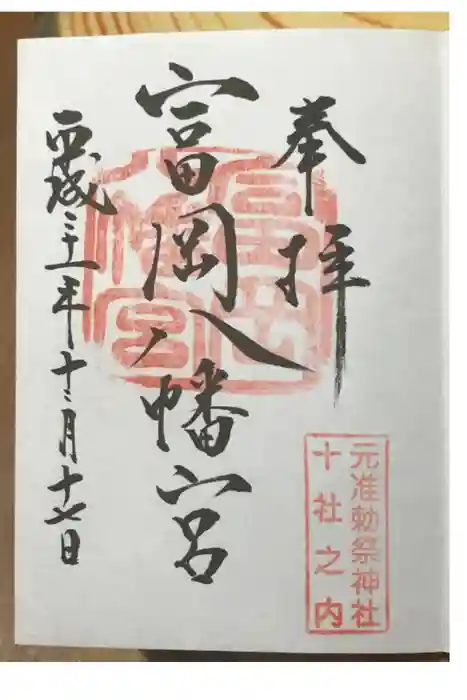 奉拝
元准勅祭神社
十社之内
富岡八幡宮
平成二十一年十二月十七日